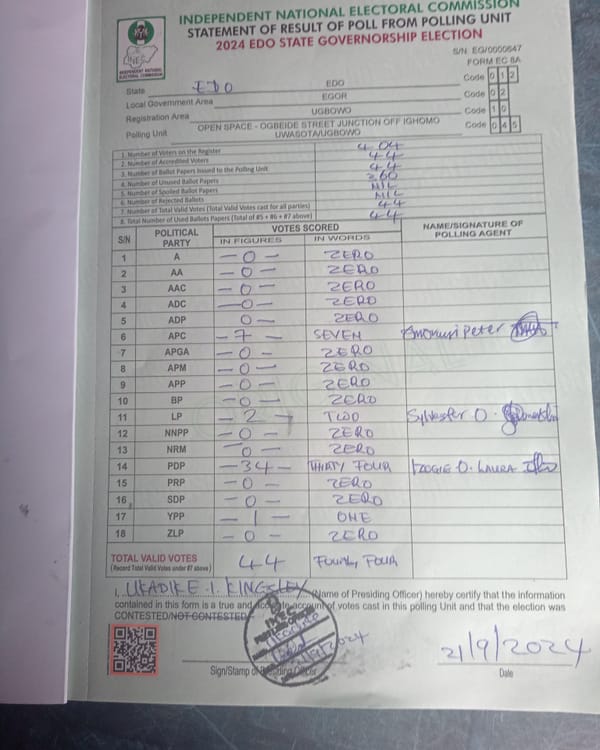 INDEPENDENT NATIONAL ELECTORAL COMMISSION
STATEMENT OF RESULT OF POLL FROM POLLING UNIT
2024 EDO STATE GOVERNORSHIP ELECTION
S/N EG/0000647
FORM EC 8A
INEC
INDEPENDENT NATIONAL ELECTORAL COMMISSION
State EDO EDO Code 0 1 2
Local Government Area EGOR Code 0 2
Registration Area UGBOWO Code 1 0
Polling Unit OPEN SPACE - OGBEIDE STREET JUNCTION OFF IGHOMO UWASOTA/UGBOWO Code 0 4 5
1. Number of Voters on the Register 404
2. Number of Accredited Voters 44
3. Number of Ballot Papers Issued to the Polling Unit 44
4. Number of Unused Ballot Papers 260
5. Number of Spoiled Ballot Papers NIL
6. Number of Rejected Ballots NIL
7. Number of Total Valid Votes (Total Valid Votes cast for all parties) 44
8. Total Number of Used Ballots Papers (Total of #5 + #6 + #7 above) 44
S/N POLITICAL PARTY VOTES SCORED NAME/SIGNATURE OF POLLING AGENT
IN FIGURES IN WORDS
1 A - 0 - ZERO
2 AA - 0 - ZERO
3 AAC - 0 - ZERO
4 ADC - 0 - ZERO
5 ADP 0 - ZERO
6 APC - 7 - SEVEN Peter
7 APGA - 0 - ZERO
8 APM - 0 - ZERO
9 APP - 0 - ZERO
10 BP - 0 - ZERO
11 LP - 2 - TWO Sylvester O.
12 NNPP - 0 - ZERO
13 NRM - 0 - ZERO
14 PDP - 34 - THIRTY FOUR IZOGIE O. LAURA
15 PRP - 0 - ZERO
16 SDP - 0 - ZERO
17 YPP - 1 - ONE
18 ZLP - 0 - ZERO
TOTAL VALID VOTES 44 FOUR, FOUR
(Record Total Valid Votes under #7 above)
I, UKADIKE .I. KINGSLEY (Name of Presiding Officer) hereby certify that the information
contained in this form is a true and accurate account of votes cast in this polling Unit and that the election was
CONTESTED/NOT CONTESTED
21/9/2024
Sign/Stamp of Presiding Officer
Date